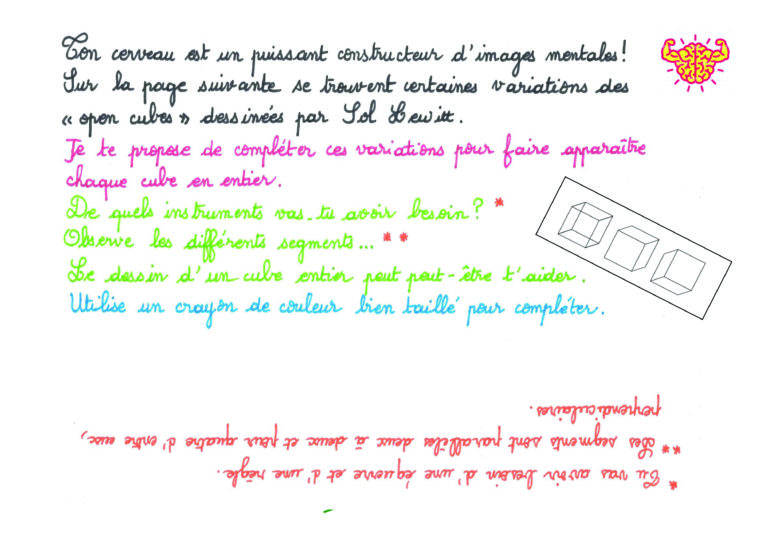 Ton cerveau est un puissant constructeur d'images mentales!
Sur la page suivante se trouvent certaines variations des
« open cubes » dessinées par Sol Lewitt.
Je te propose de compléter ces variations pour faire apparaître
chaque cube en entier.
De quels instruments vas-tu avoir besoin? *
Observe les différents segments... **
Le dessin d'un cube entier peut peut-être t'aider.
Utilise un crayon de couleur bien taillé pour compléter.
* Tu vas avoir besoin d'une équerre et d'une règle.
** Les segments sont parallèles deux à deux et pour quatre d'entre eux,
perpendiculaires.